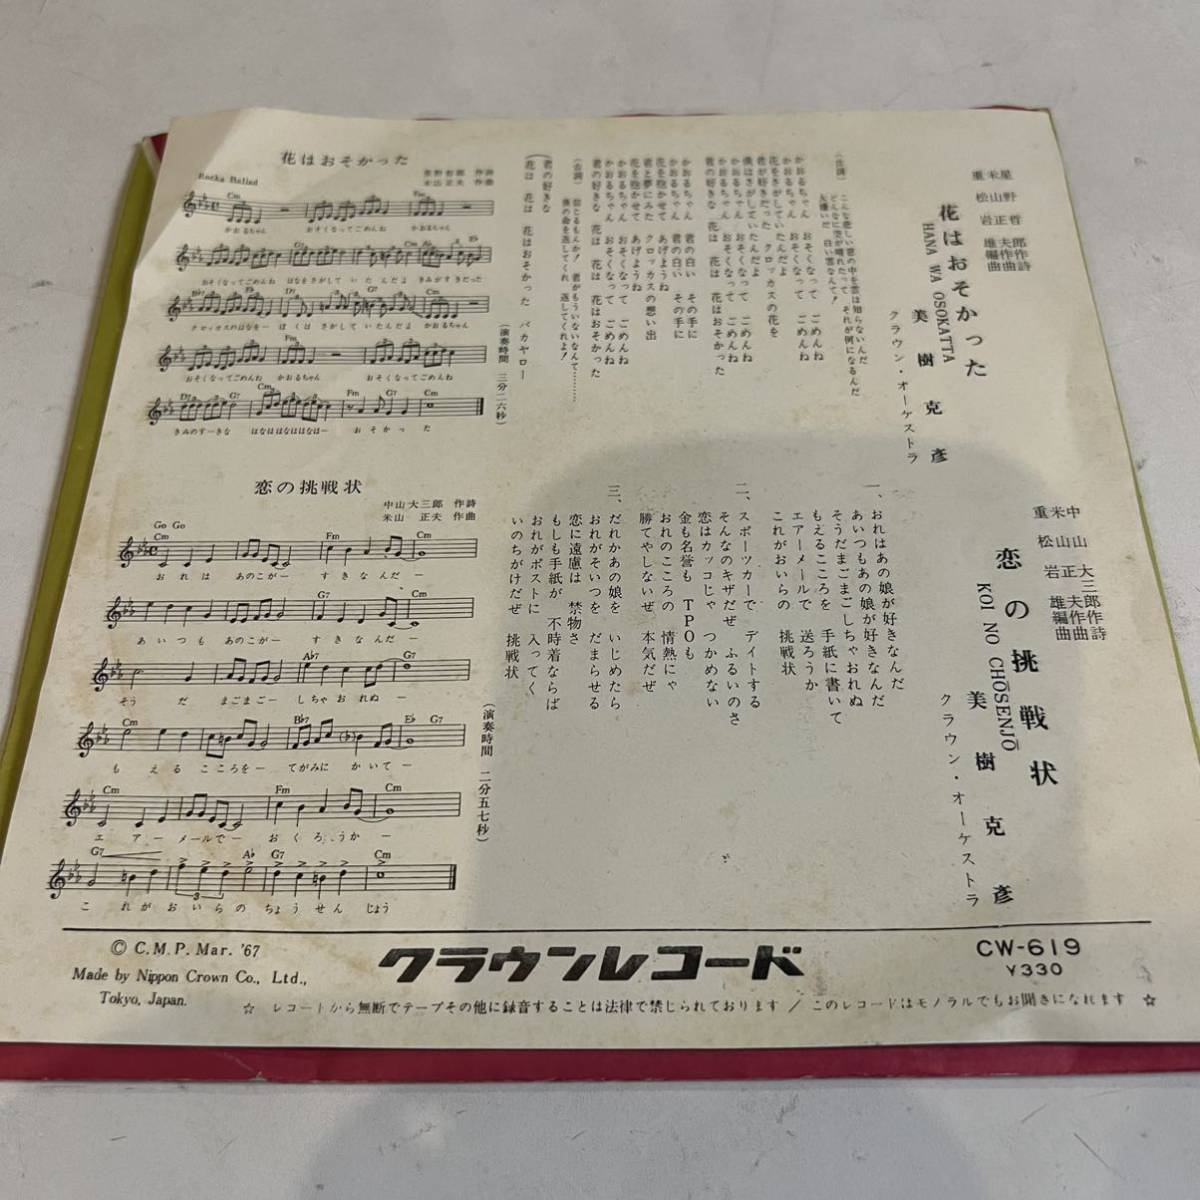 花はおそかった
星野哲郎 作詩
米山正夫 作曲
Rocka Ballad
Cm
Fm
かおるちゃん おそくなってごめんね かおるちゃん
おそくなってごめんね はなをさがして いたんだよ きみがすきだった
クロッカスのはなを ー ぼくは さがして いたんだよ かおるちゃん
おそくなってごめんね かおるちゃん おそくなってごめんね
きみのすーきな はなははなははなはー おそかった
(演奏時間 三分二六秒)
星野哲郎作詩
米山正夫作曲
重松岩雄編曲
花はおそかった
HANA WA OSOKATTA
美樹克彦
クラウン・オーケストラ
(台詞)
こんな悲しい窓の中を雲は知らないんだ
どんなに空が晴れたって それが何になるんだ
大嫌いだ 白い雲なんて!
かおるちゃん おそくなって ごめんね
かおるちゃん おそくなって ごめんね
花をさがしていたんだよ
君が好きだった クロッカスの花を
僕はさがしていたんだよ
かおるちゃん おそくなって ごめんね
かおるちゃん おそくなって ごめんね
君の好きな 花は 花は 花はおそかった
かおるちゃん 君の白い その手に
かおるちゃん 君の白い その手に
花を抱かせて あげようね
君と夢にみた クロッカスの想い出
花を抱かせて あげようね
かおるちゃん おそくなって ごめんね
かおるちゃん おそくなって ごめんね
君の好きな 花は 花は 花はおそかった
(台詞)
信じるもんか! 君がもういないなんて………
僕の命を返してくれ 返してくれよ!
(君の好きな
花は 花は 花はおそかった バカヤロー
恋の挑戦状
中山大三郎 作詩
米山 正夫 作曲
Go Go
Cm
Fm
Cm
おれは あのこがー すきなんだー
G7
Cm
あいつも あのこがー すきなんだー
Ab7
G7
Cm
そう だ まごまごー しちゃおれぬー
Cm
Bb7
Eb
G7
もえる こころをー てがみに かいてー
Cm
Fm
Cm
エアーメールでー おくろうかー
G7
Ab
G7
Cm
3
これがおいらの ちょうせん じょう
(演奏時間 二分五七秒)
中山大三郎作詩
米山正夫作曲
重松岩雄編曲
恋の挑戦状
KOI NO CHŌSENJŌ
美樹克彦
クラウン・オーケストラ
一、おれはあの娘が好きなんだ
あいつもあの娘が好きなんだ
そうだまごまごしちゃおれぬ
もえるこころを 手紙に書いて
エアーメールで 送ろうか
これがおいらの 挑戦状
二、スポーツカーで デイトする
そんなのキザだぜ ふるいのさ
恋はカッコじゃ つかめない
金も名誉も TPOも
おれのこころの 情熱にゃ
勝てやしないぜ 本気だぜ
三、だれかあの娘を いじめたら
おれがそいつを だまらせる
恋に遠慮は 禁物さ
もしも手紙が 不時着ならば
おれがポストに 入ってく
いのちがけだぜ 挑戦状
© C.M.P. Mar. '67
Made by Nippon Crown Co., Ltd.,
Tokyo, Japan.
クラウンレコード
CW-619
¥330
☆ レコードから無断でテープその他に録音することは法律で禁じられております / このレコードはモノラルでもお聞きになれます ☆